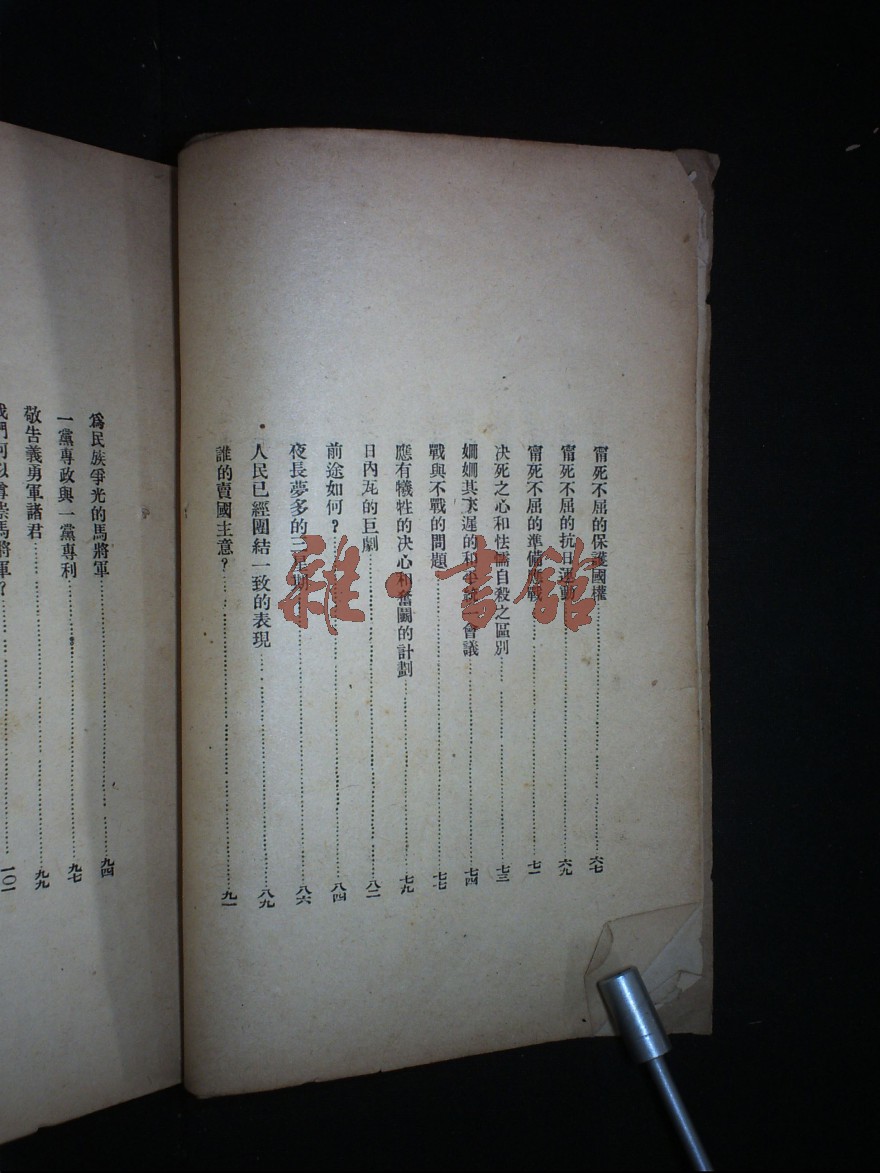 甯死不屈的保護國權……六七
甯死不屈的抗日運動……六九
甯死不屈的準備應戰……七一
决死之心和怯懦自殺之區別……七三
姍姍其來遲的和平統一會議……七四
戰與不戰的問題……七七
應有犧牲的决心和奮鬭的計劃……七九
日內瓦的巨劇……八二
前途如何？……八四
夜長夢多的三星期……八六
人民已經團結一致的表現……八九
誰的賣國主意？……九一
爲民族爭光的馬將軍……九四
一黨專政與一黨專利……九七
敬告義勇軍諸君……九九
我們何以尊崇馬將軍？……一〇一
雜·書館